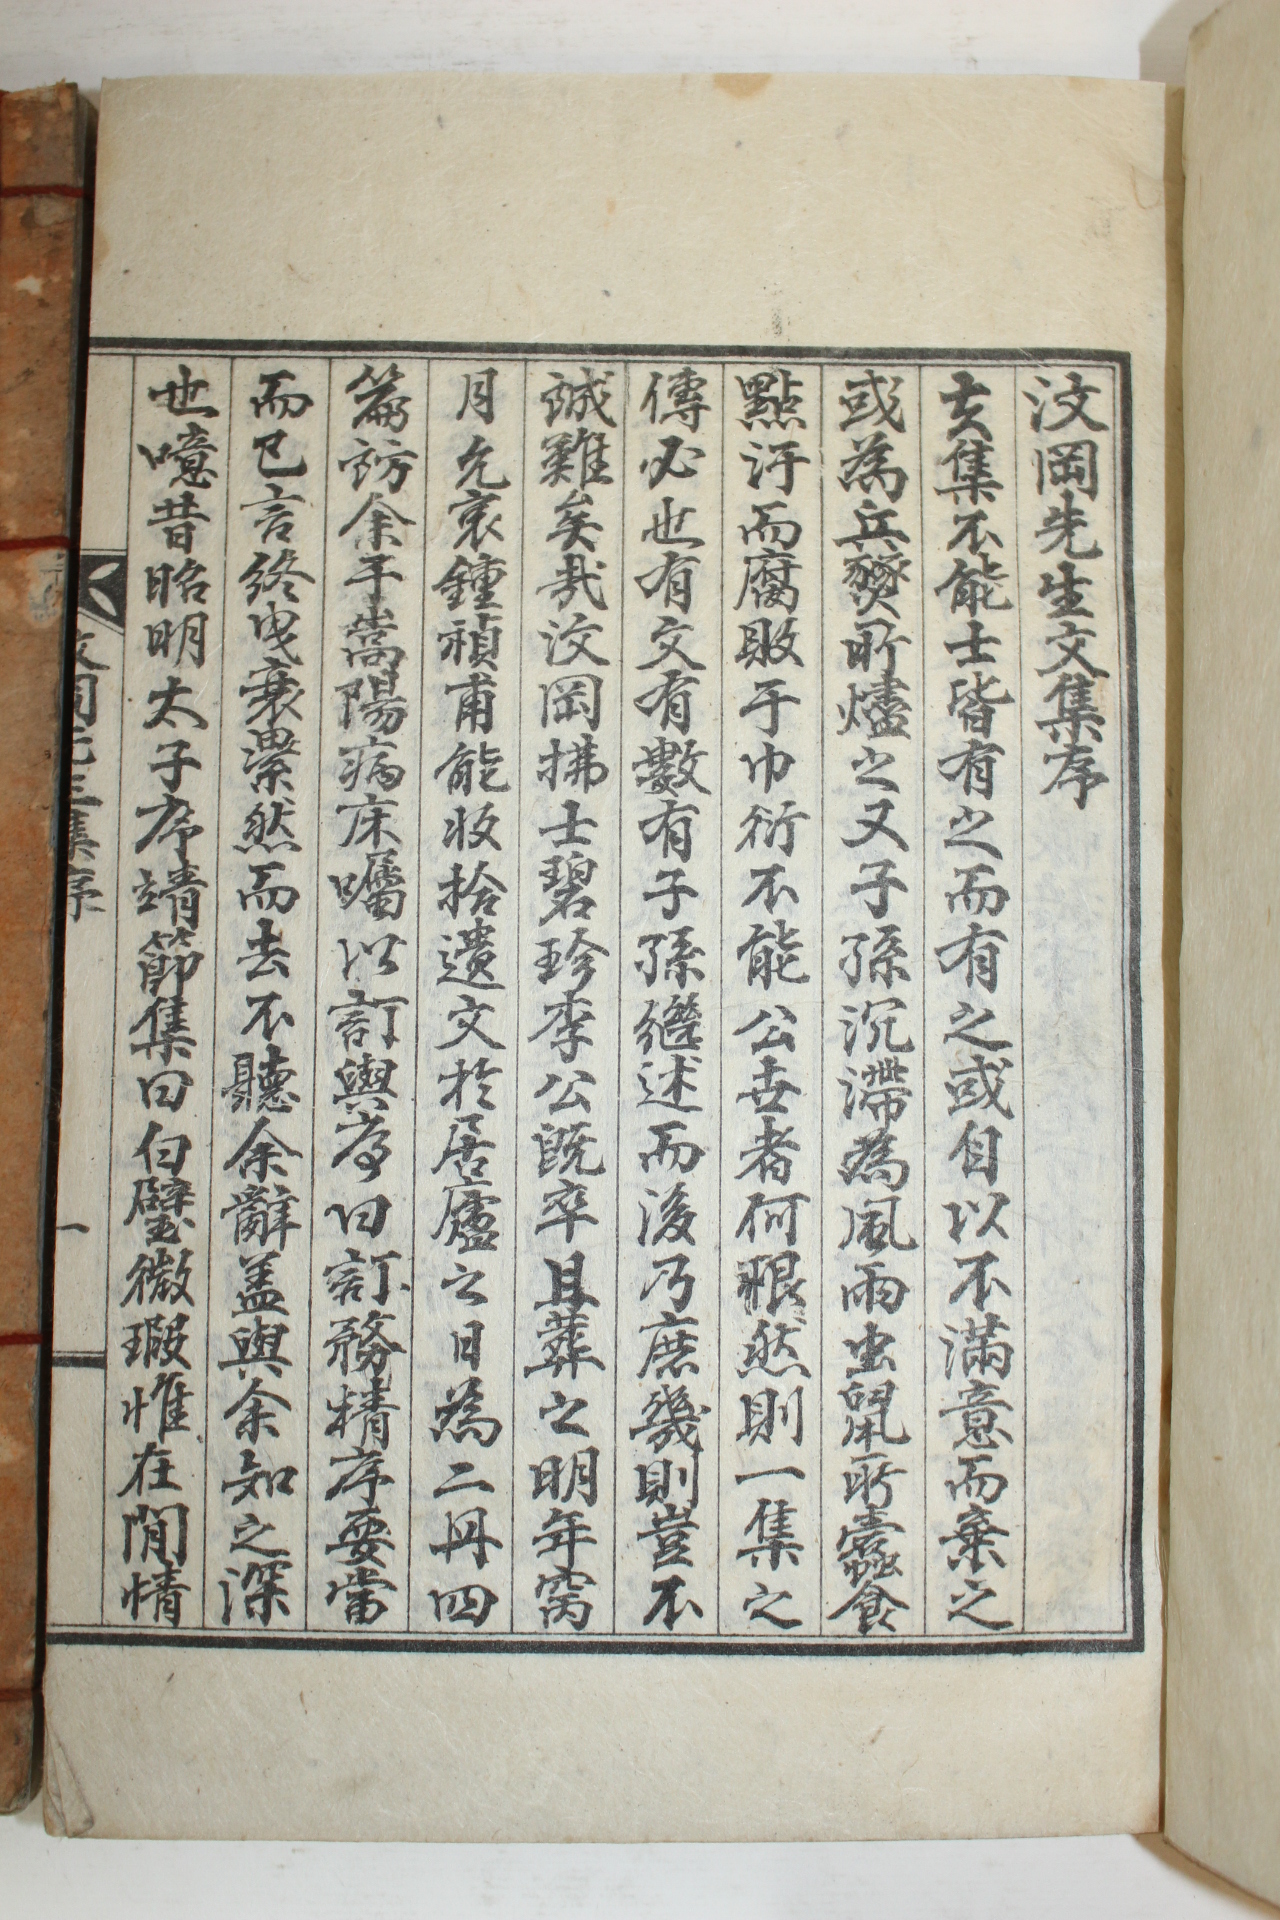 汶岡先生文集序
夫集不能士皆有之而有之或自以不滿意而棄之
或為兵燹所燼之又子孫沉滯為風雨虫鼠所蠹食
點汙而腐敗于巾衍不能公世者何限然則一集之
傳必也有文有數有子孫繼述而後乃庶幾則豈不
誠難矣哉汶岡拂士碧珍李公旣卒且葬之明年窩
月允哀鍾禎甫能收拾遺文於居廬之日為二冊四
篇訪余于嵩陽病床囑以訂與序曰訂務精序要當
而已言終曳衰潔然而去不聽余辭盖與余知之深
也噫昔昭明太子序靖節集曰白璧微瑕惟在閒情
汶岡先生集序
一